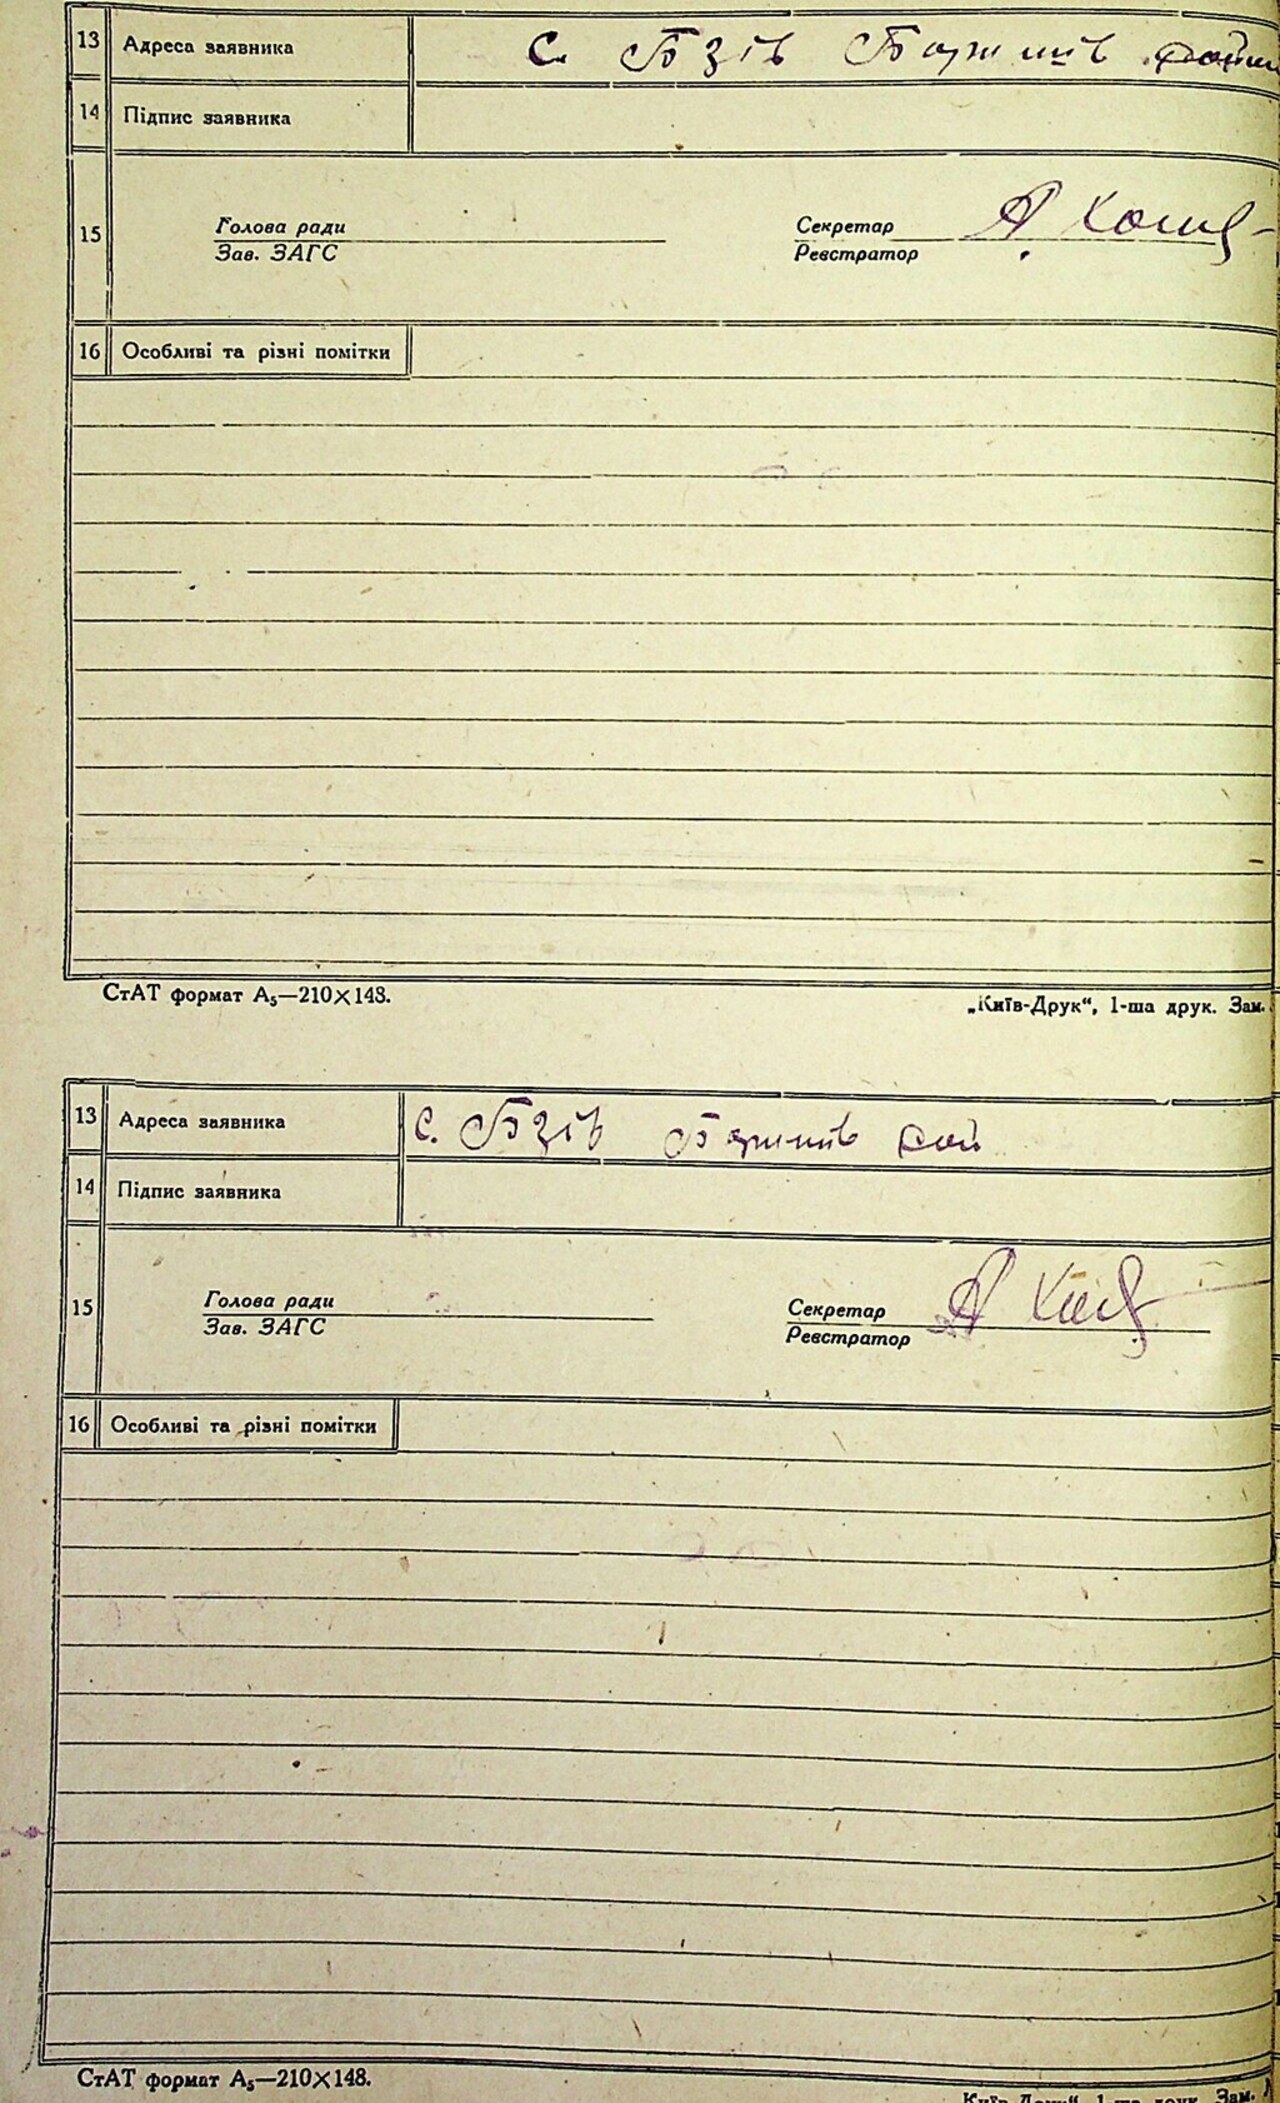 13 Адреса заявника с. Бзів Бориспів район
14 Підпис заявника
15 Голова ради Секретар
Зав. ЗАГС Реєстратор
16 Особливі та різні помітки
СтАТ формат А₅—210×148.
„Київ-Друк“, 1-ша друк. Зам.
13 Адреса заявника с. Бзів рай
14 Підпис заявника
15 Голова ради Секретар
Зав. ЗАГС Реєстратор
16 Особливі та різні помітки
СтАТ формат А₅—210×148.
„Київ-Друк“, 1-ша друк. Зам.